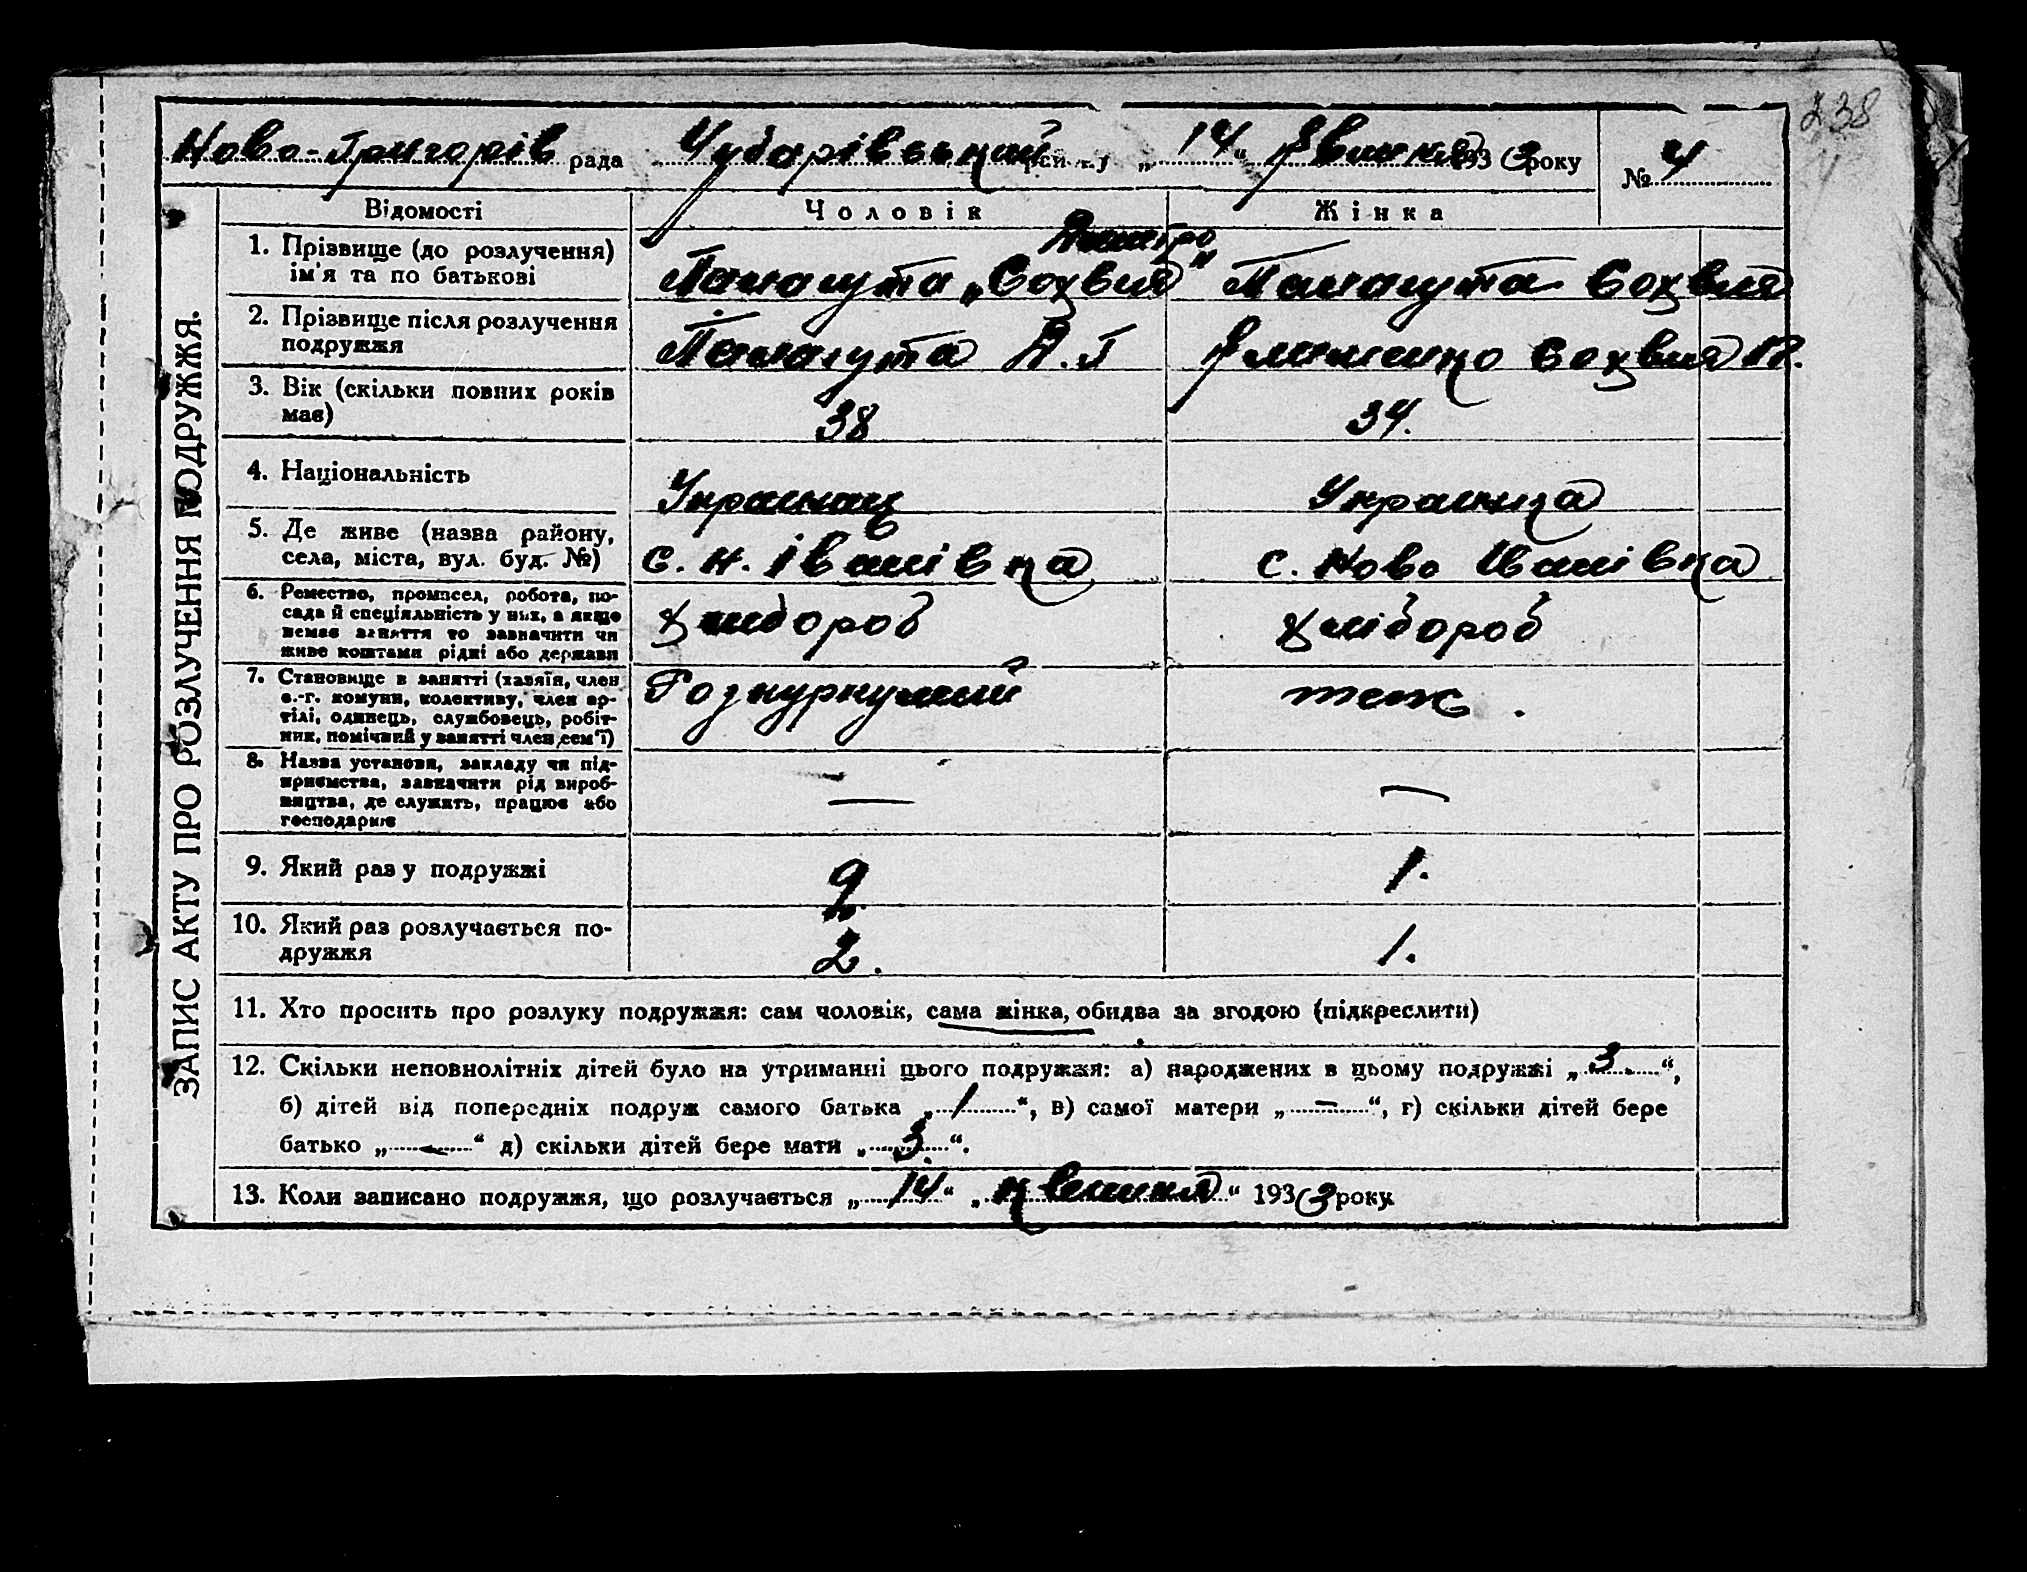 238
Ново-Григорів рада Чубарівський району „14“ Квитня 1933 року № 4
Відомості Чоловік Жінка
1. Прізвище (до розлучення) ім'я та по батькові
Дмитро
Панагута „Сохвия" Панагута Сохвия
2. Прізвище після розлучення подружжя
Панагута Д. Г Клименко Сохвия
3. Вік (скільки повних років має)
38 34.
4. Національність
Украинец Украинка
5. Де живе (назва району, села, міста, вул. буд. №)
с. н. Іванівка с. Ново Іванівка
6. Ремество, промисел, робота, по-
сада й спеціяльність у них, а якщо
немає заняття то зазначити чи
живе коштами рідні або держави
хлібороб хлібороб
7. Становище в занятті (хазяїн, член
с.-г. комуни, колективу, член ар-
тілі, одинець, службовець, робіт-
ник, помічний у занятті член сем'ї)
Розкуркулиний теж.
8. Назва установи, закладу чи під-
приємства, зазначити рід вироб-
ництва, де служить, працює або
господарює
— —
9. Який раз у подружжі
2. 1.
10. Який раз розлучається по-
дружжя
2. 1.
11. Хто просить про розлуку подружжя: сам чоловік, сама жінка, обидва за згодою (підкреслити)
12. Скільки неповнолітніх дітей було на утриманні цього подружжя: а) народжених в цьому подружжі „3“,
б) дітей від попередніх подруж самого батька „1“, в) самої матери „—“, г) скільки дітей бере
батько „—“ д) скільки дітей бере мати „3“.
13. Коли записано подружжя, що розлучається „14“ „квитня“ 1933 року
ЗАПИС АКТУ ПРО РОЗЛУЧЕННЯ ПОДРУЖЖЯ.